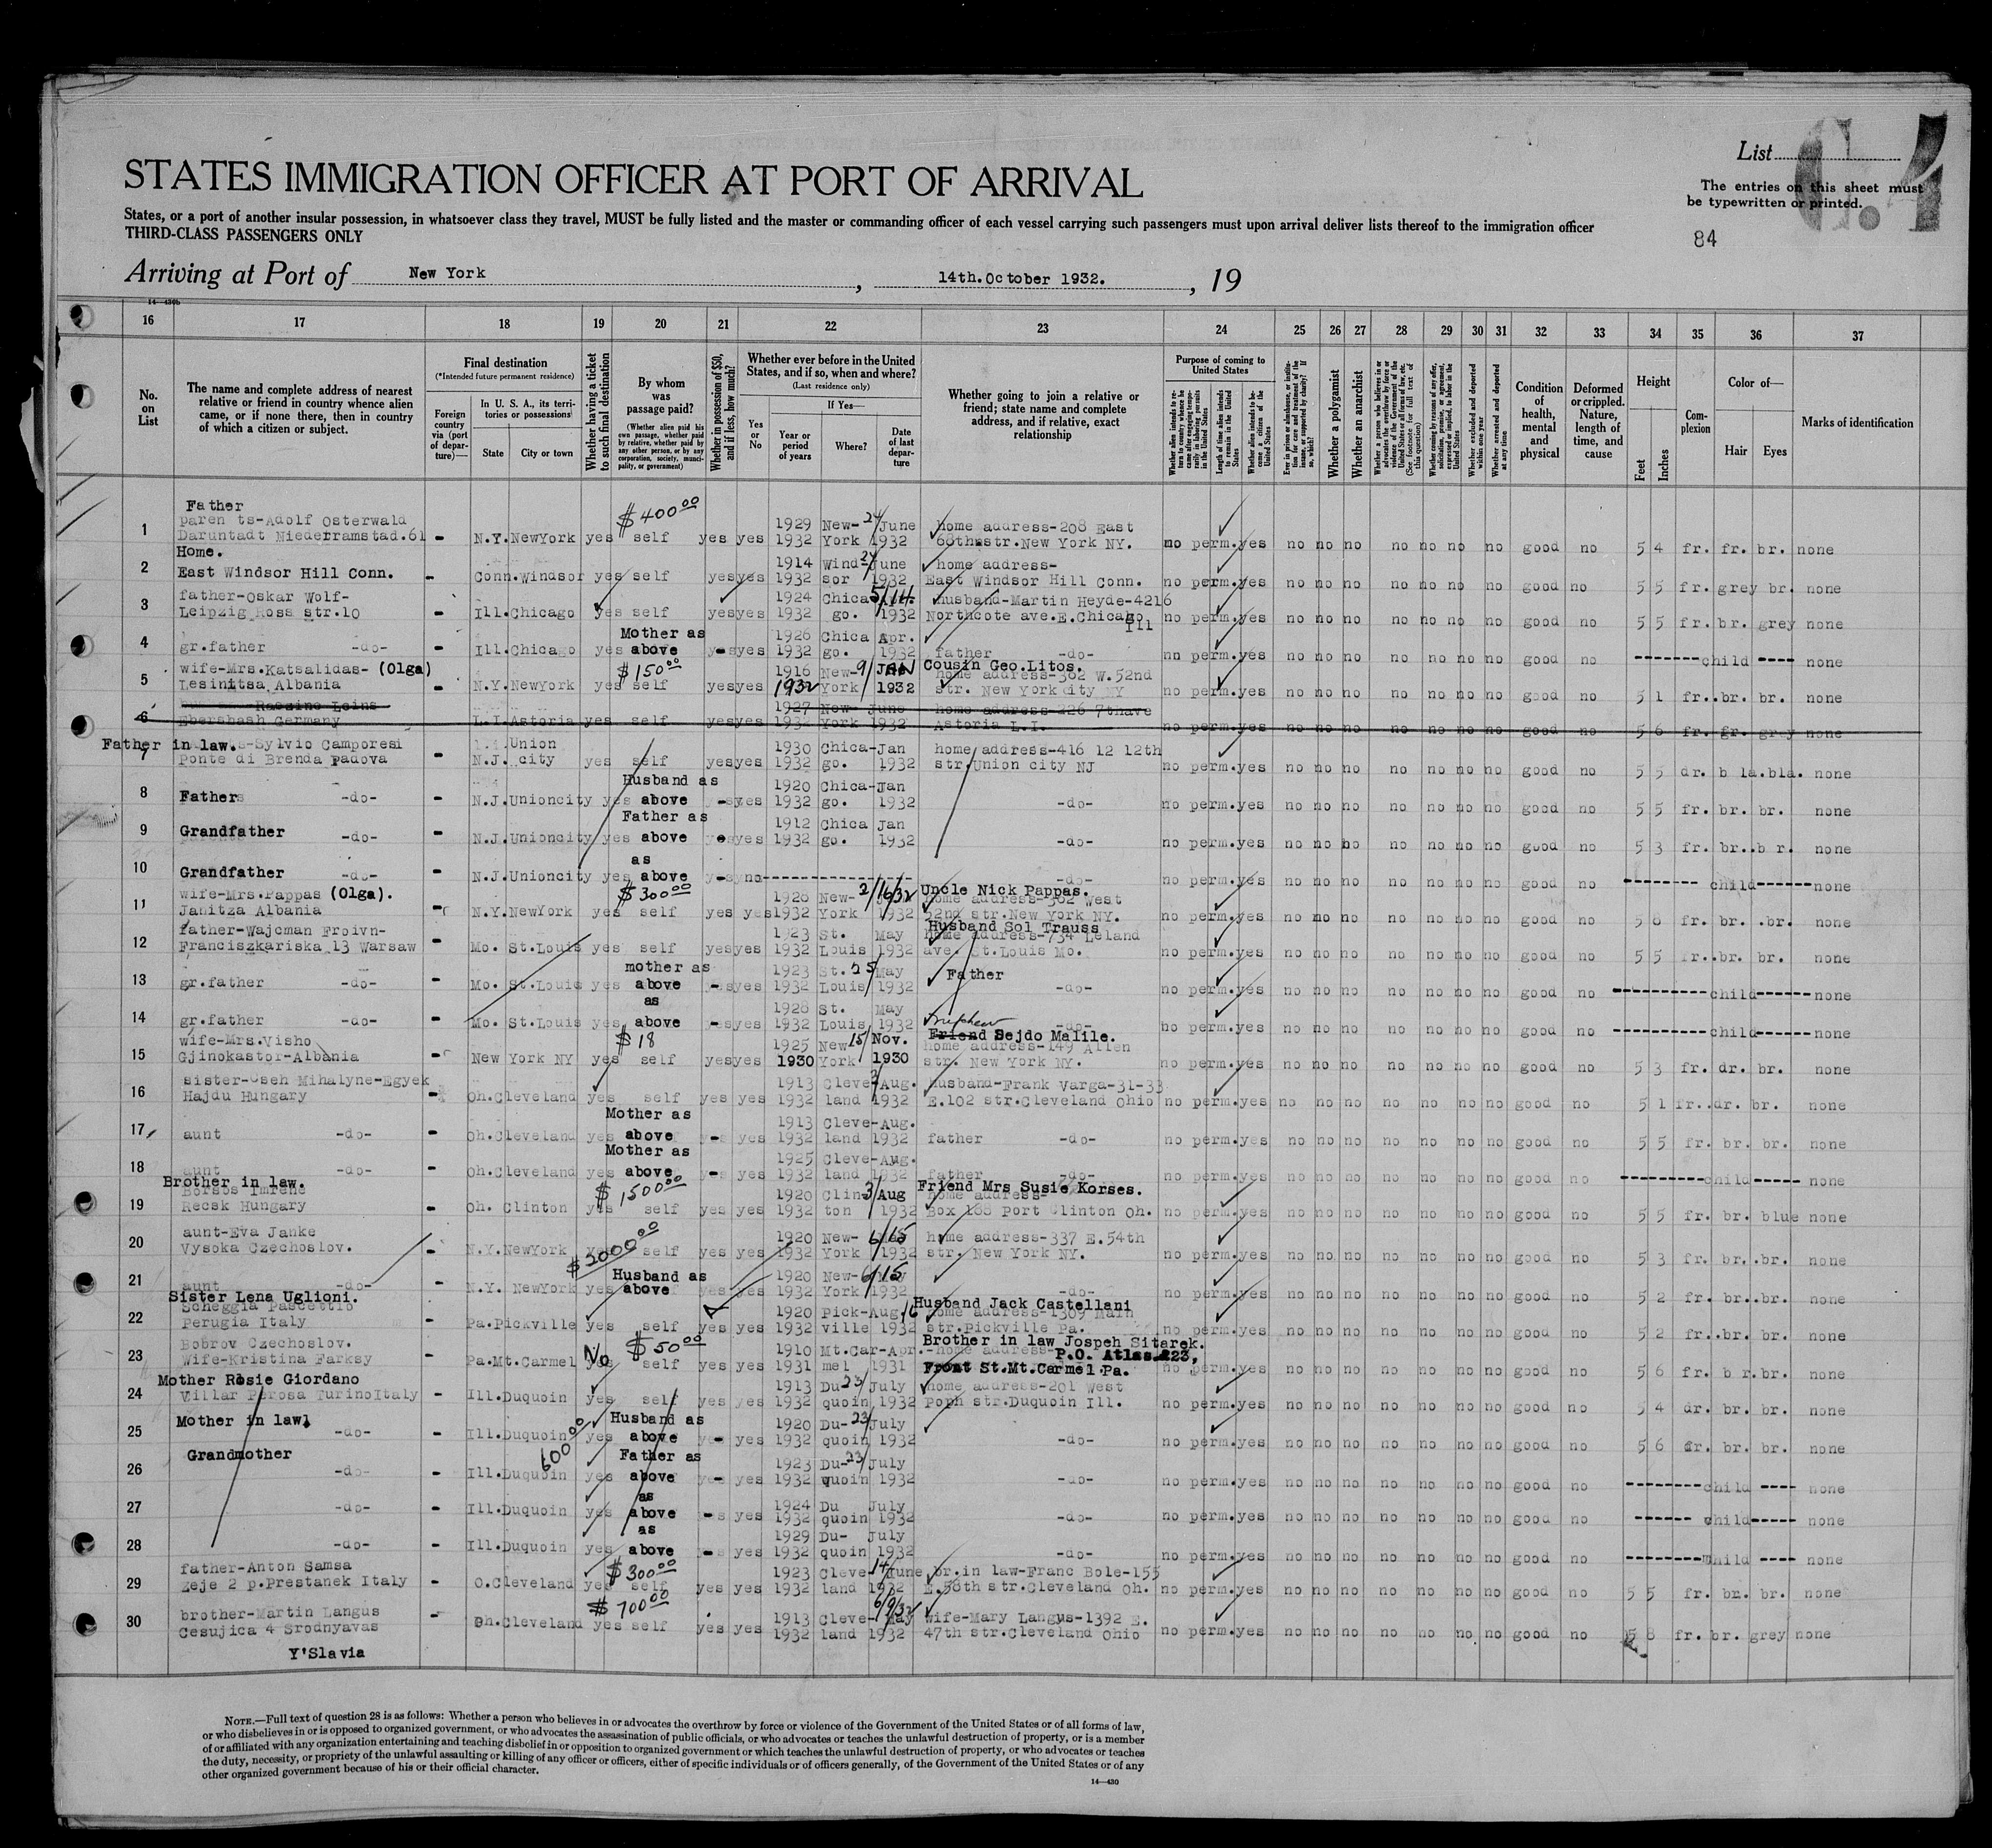 List
G.4
STATES IMMIGRATION OFFICER AT PORT OF ARRIVAL
The entries on this sheet must
be typewritten or printed.
States, or a port of another insular possession, in whatsoever class they travel, MUST be fully listed and the master or commanding officer of each vessel carrying such passengers must upon arrival deliver lists thereof to the immigration officer
THIRD-CLASS PASSENGERS ONLY
84
Arriving at Port of New York , 14th.October 1932. , 19
16 17 18 19 20 21 22 23 24 25 26 27 28 29 30 31 32 33 34 35 36 37
No. on List
The name and complete address of nearest relative or friend in country whence alien came, or if none there, then in country of which a citizen or subject.
Final destination
(*Intended future permanent residence)
Foreign country via (port of departure)—
In U. S. A., its territories or possessions
State City or town
Whether having a ticket to such final destination
By whom was passage paid?
(Whether alien paid his own passage, whether paid by relative, whether paid by any other person, or by any corporation, society, municipality, or government)
Whether in possession of $50, and if less, how much?
Whether ever before in the United States, and if so, when and where?
(Last residence only)
Yes or No
If Yes—
Year or period of years Where? Date of last departure
Whether going to join a relative or friend; state name and complete address, and if relative, exact relationship
Purpose of coming to United States
Whether a polygamist
Whether an anarchist
Whether arrested and deported at any time
Condition of health, mental and physical
Deformed or crippled. Nature, length of time, and cause
Height
Feet Inches
Complexion
Color of—
Hair Eyes
Marks of identification
Father $400.00
1 paren ts-Adolf Osterwald 1929 New- 24/June home address-208 East
Daruntadt Niederramstad.61 - N.Y.NewYork yes self yes yes 1932 York 1932 68thstr.New York NY. no perm.yes no no no no no no no good no 5 4 fr. fr. br. none
2 Home. 1914 Wind 24/June home address-
East Windsor Hill Conn. - Conn.Windsor yes self yes yes 1932 sor 1932 East Windsor Hill Conn. no perm.yes no no no no no no no good no 5 5 fr. grey br. none
3 father-Oskar Wolf- 1924 Chica 5/14. husband-Martin Heyde-4216
Leipzig Ross str.10 - Ill.Chicago yes self yes yes 1932 go. 1932 Northcote ave.E.Chicago Ill no perm.yes no no no no no no no good no 5 5 fr. br. grey none
4 Mother as 1926 Chica Apr.
gr.father -do- - Ill.Chicago yes above - yes 1932 go. 1932 father -do- no perm.yes no no no no no no no good no child none
5 wife-Mrs.Katsalidas- (Olga) $150.00 1916 New- 9/JAN Cousin Geo.Litos. home address-362 W.52nd
Lesinitsa Albania - N.Y.NewYork yes self yes yes 1932 York 1932 str. New York city NY no perm.yes no no no no no no no good no 5 1 fr. br. br. none
6 1927 New- June home address-226 7thave
Ebershash Germany L.I.Astoria yes self yes yes 1932 York 1932 Astoria L.I. no perm.yes no no no no no no no good no 5 6 fr. gr. grey none
7 Father in law. -Sylvio Camporesi Union 1930 Chica-Jan home address-416 12 12th
Ponte di Brenda Padova - N.J. city yes self yes yes 1932 go. 1932 str.Union city NJ no perm.yes no no no no no no no good no 5 5 dr. b la.bla. none
8 Husband as 1920 Chica-Jan
Father -do- - N.J.Unioncity yes above - yes 1932 go. 1932 -do- no perm.yes no no no no no no no good no 5 5 fr. br. br. none
9 Father as 1912 Chica Jan
Grandfather -do- - N.J.Unioncity yes above - yes 1932 go. 1932 -do- no perm.yes no no no no no no no good no 5 3 fr. br. b r. none
10 as
Grandfather -do- - N.J.Unioncity yes above - no -do- no perm.yes no no no no no no no good no child none
11 wife-Mrs.Pappas (Olga). $300.00 1928 New- 2/16/32 Uncle Nick Pappas. home address-362 West
Janitza Albania - N.Y.NewYork yes self yes yes 1932 York 1932 52nd str.New York NY. no perm.yes no no no no no no no good no 5 8 fr. br. .br. none
12 father-Wajcman Froivn- 1923 St. May Husband Sol Trauss home address-734 Leland
Franciszkariska 13 Warsaw - Mo. St.Louis yes self yes yes 1932 Louis 1932 ave. St.Louis Mo. no perm.yes no no no no no no no good no 5 5 fr. br. br. none
13 mother as 1923 St. 25/May Father
gr.father -do- - Mo. St.Louis yes above - yes 1932 Louis 1932 -do- no perm.yes no no no no no no no good no child none
14 as 1928 St. May
gr.father -do- - Mo. St.Louis yes above - yes 1932 Louis 1932 -do- no perm.yes no no no no no no no good no child none
15 wife-Mrs.Visho $18 1925 New 15/Nov. nephew Friend Sejdo Malile. home address-149 Allen
Gjinokastor-Albania - New York NY yes self yes yes 1930 York 1930 str. New York NY. no perm.yes no no no no no no no good no 5 3 fr. dr. br. none
16 sister-Oseh Mihalyne-Egyek 1913 Cleve 2/Aug. husband-Frank Varga-31-33
Hajdu Hungary - Oh.Cleveland yes self yes yes 1932 land 1932 E.102 str.Cleveland Ohio no perm.yes no no no no no no no good no 5 1 fr. dr. br. none
17 Mother as 1913 Cleve-Aug.
aunt -do- - Oh.Cleveland yes above - yes 1932 land 1932 father -do- no perm.yes no no no no no no no good no 5 5 fr. br. br. none
18 Mother as 1925 Cleve-Aug.
aunt -do- - Oh.Cleveland yes above - yes 1932 land 1932 father -do- no perm.yes no no no no no no no good no child none
19 Brother in law. Borsos Imrene $1500.00 1920 Clin 3/Aug Friend Mrs Susie Korses. home address-
Recsk Hungary - Oh. Clinton yes self yes yes 1932 ton 1932 Box 168 Port Clinton Oh. no perm.yes no no no no no no no good no 5 5 fr. br. blue none
20 aunt-Eva Janke 1920 New- 6/15 home address-337 E.54th
Vysoka Czechoslov. - N.Y.NewYork $2000.00 self yes yes 1932 York 1932 str. New York NY. no perm.yes no no no no no no no good no 5 3 fr. br. .br. none
21 Husband as 1920 New- 6/15
aunt -do- - N.Y. NewYork yes above yes yes 1932 York 1932 -do- no perm.yes no no no no no no no good no 5 2 fr. br. .br. none
22 Sister Lena Uglioni. Scheggia Pascettio 1920 Pick-Aug/16 Husband Jack Castellani home address-1309 Main
Perugia Italy - Pa.Pickville yes self yes yes 1932 ville 1932 str.Pickville Pa. no perm.yes no no no no no no no good no 5 2 fr. br. br. none
23 Bobrov Czechoslov. No $50.00 1910 Mt.Car-Apr. Brother in law Jospeh Sitarek. home address- P.O. Atlas 223,
Wife-Kristina Farksy - Pa.Mt.Carmel yes self yes yes 1931 mel 1931 Front St.Mt.Carmel Pa. no perm.yes no no no no no no no good no 5 6 fr. b r. br. none
24 Mother Rosie Giordano 1913 Du 23/July home address-201 West
Villar Perosa TurinoItaly - Ill.Duquoin yes self yes yes 1932 quoin 1932 Poph str.Duquoin Ill. no perm.yes no no no no no no no good no 5 4 dr. br. br. none
25 Mother in law Husband as 1920 Du-23/July
-do- - Ill.Duquoin 600.00 yes above - yes 1932 quoin 1932 -do- no perm.yes no no no no no no no good no 5 6 dr. br. br. none
26 Grandmother Father as 1923 Du-23/July
-do- - Ill.Duquoin yes above - yes 1932 quoin 1932 -do- no perm.yes no no no no no no no good no child none
27 as 1924 Du July
-do- - Ill.Duquoin yes above - yes 1932 quoin 1932 -do- no perm.yes no no no no no no no good no child none
28 as 1929 Du- July
-do- - Ill.Duquoin yes above - yes 1932 quoin 1932 -do- no perm.yes no no no no no no no good no child none
29 father-Anton Samsa $300.00 1923 Cleve 14/June br.in law-Franc Bole-155
Zeje 2 p.Prestanek Italy - O.Cleveland yes self yes yes 1932 land 1932 E.58th str.Cleveland Oh. no perm.yes no no no no no no no good no 5 5 fr. br. br. none
30 brother-Martin Langus $700.00 1913 Cleve- 6/9/32 May wife-Mary Langus-1392 E.
Cesujica 4 Srodnyavas - Oh.Cleveland yes self yes yes 1932 land 1932 47th str.Cleveland Ohio no perm.yes no no no no no no no good no 5 8 fr. br. grey none
Y'Slavia
NOTE.—Full text of question 28 is as follows: Whether a person who believes in or advocates the overthrow by force or violence of the Government of the United States or of all forms of law,
or who disbelieves in or is opposed to organized government, or who advocates the assassination of public officials, or who advocates or teaches the unlawful destruction of property, or is a member
of or affiliated with any organization entertaining and teaching disbelief in or opposition to organized government or which teaches the unlawful destruction of property, or who advocates or teaches
the duty, necessity, or propriety of the unlawful assaulting or killing of any officer or officers, either of specific individuals or of officers generally, of the Government of the United States or of any
other organized government because of his or their official character.
14—430